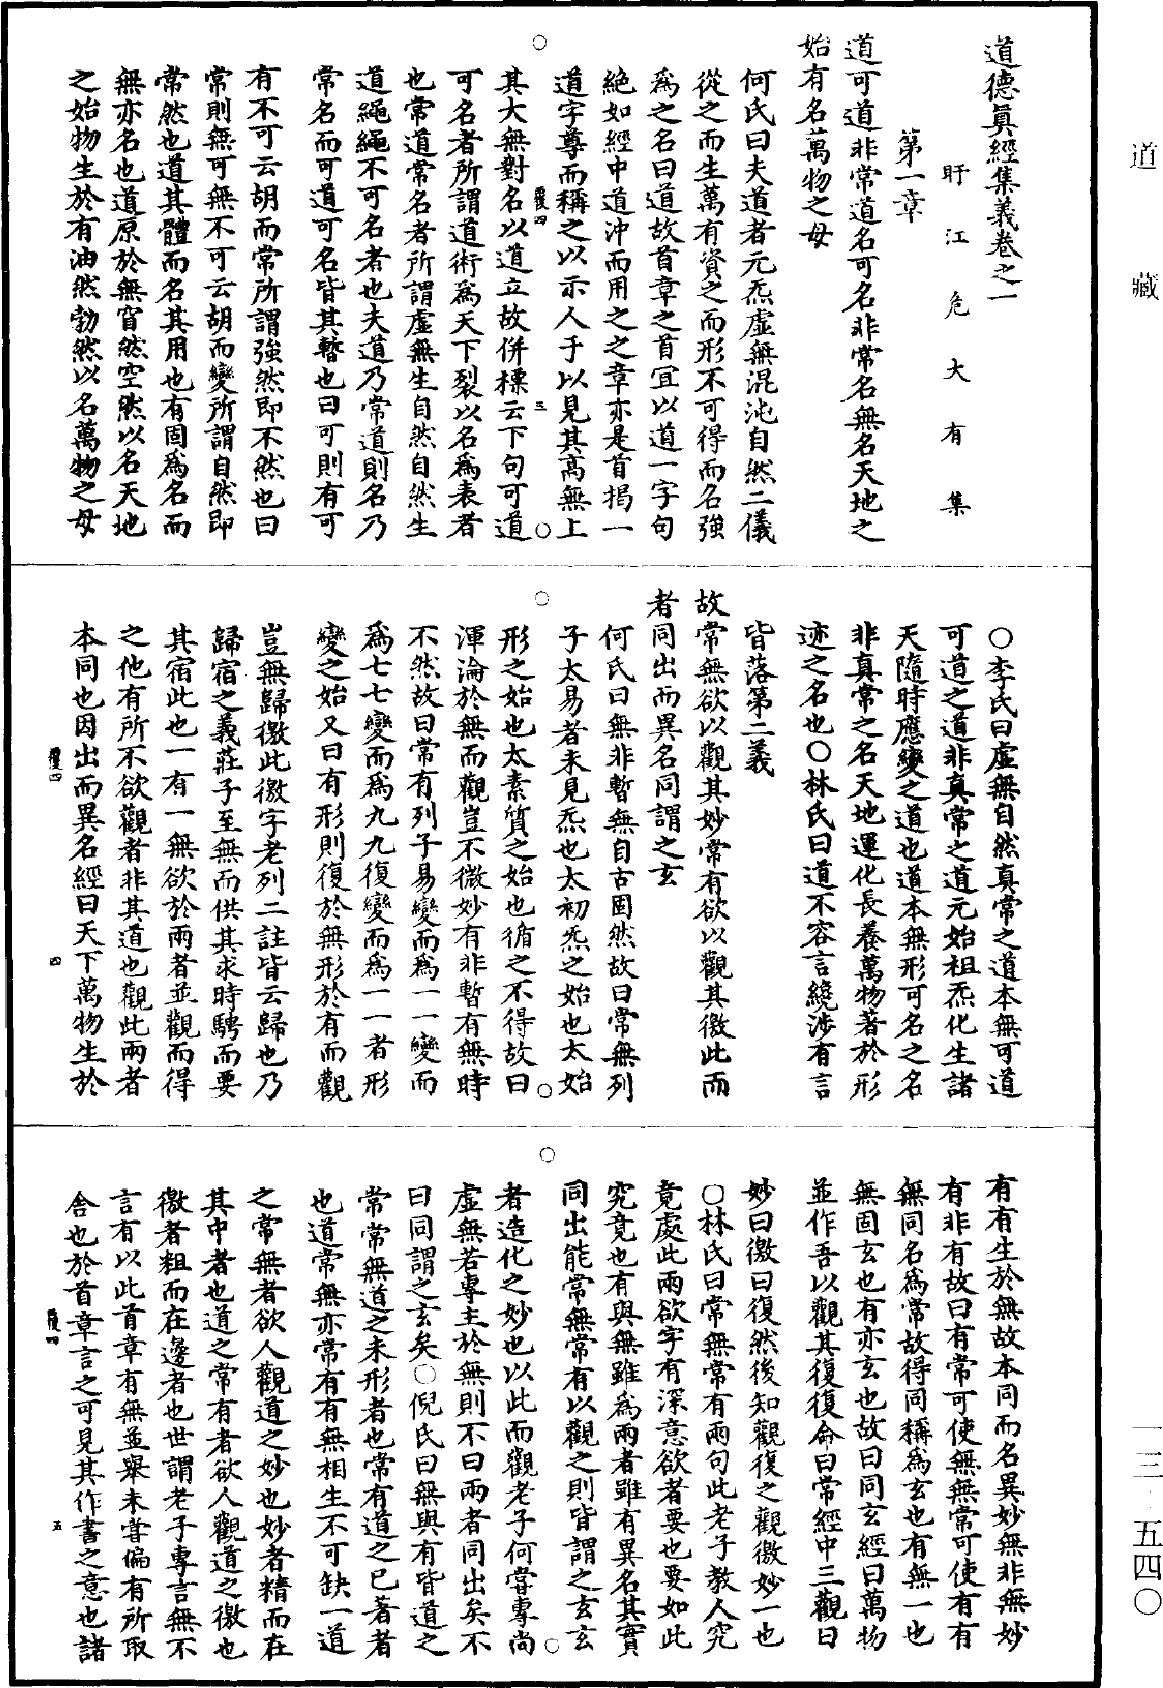 道藏
一三·五四〇
道德眞經集義卷之一
盱江危大有集
第一章
道可道非常道名可名非常名無名天地之
始有名萬物之母
何氏曰夫道者元炁虛無混沌自然二儀
從之而生萬有資之而形不可得而名強
爲之名曰道故首章之首冝以道一字句
絶如經中道沖而用之之章亦是首揭一
道字尊而稱之以示人于以見其高無上
其大無對名以道立故併標云下句可道
可名者所謂道術爲天下裂以名爲表者
也常道常名者所謂虛無生自然自然生
道繩繩不可名者也夫道乃常道則名乃
常名而可道可名皆其暫也曰可則有可
有不可云胡而常所謂強然即不然也曰
常則無可無不可云胡而變所謂自然即
常然也道其體而名其用也有固爲名而
無亦名也道原於無窅然空然以名天地
之始物生於有油然勃然以名萬物之母
覆四
三
○李氏曰虛無自然真常之道本無可道
可道之道非真常之道元始祖炁化生諸
天隨時應變之道也道本無形可名之名
非真常之名天地運化長養萬物著於形
迹之名也○林氏曰道不容言纔涉有言
皆落第二義
故常無欲以觀其妙常有欲以觀其徼此而
者同出而異名同謂之玄
何氏曰無非暫無自古固然故曰常無列
子太易者未見炁也太初炁之始也太始
形之始也太素質之始也循之不得故曰
渾淪於無而觀豈不微妙有非暫有無時
不然故曰常有列子易變而爲一一變而
爲七七變而爲九九復變而爲一一者形
變之始又曰有形則復於無形於有而觀
豈無歸徼此徼字老列二註皆云歸也乃
歸宿之義莊子至無而供其求時騁而要
其宿此也一有一無欲於兩者並觀而得
之他有所不欲觀者非其道也觀此兩者
本同也因出而異名經曰天下萬物生於
覆四
四
有有生於無故本同而名異妙無非無妙
有非有故曰有常可使無無常可使有有
無同名爲常故得同稱爲玄也有無一也
無固玄也有亦玄也故曰同玄經曰萬物
並作吾以觀其復復命曰常經中三觀曰
妙曰徼曰復然後知觀復之觀徼妙一也
○林氏曰常無常有兩句此老子教人究
竟處此兩欲字有深意欲者要也要如此
究竟也有與無雖爲兩者雖有異名其實
同出能常無常有以觀之則皆謂之玄玄
者造化之妙也以此而觀老子何嘗專尚
虛無若專主於無則不曰兩者同出矣不
曰同謂之玄矣○倪氏曰無與有皆道之
常常無道之未形者也常有道之已著者
也道常無亦常有有無相生不可缺一道
之常無者欲人觀道之妙也妙者精而在
其中者也道之常有者欲人觀道之徼也
徼者粗而在邊者也世謂老子專言無不
言有以此首章有無並舉未嘗偏有所取
舍也於首章言之可見其作書之意也諸
覆四
五